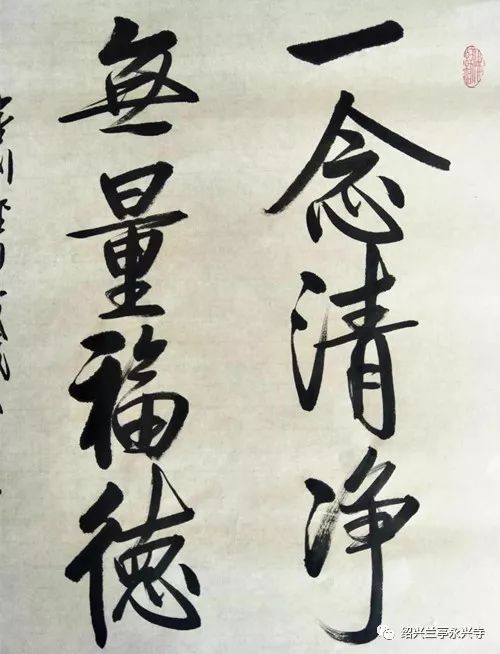 一念清净
無量福德
绍兴兰亭永兴寺